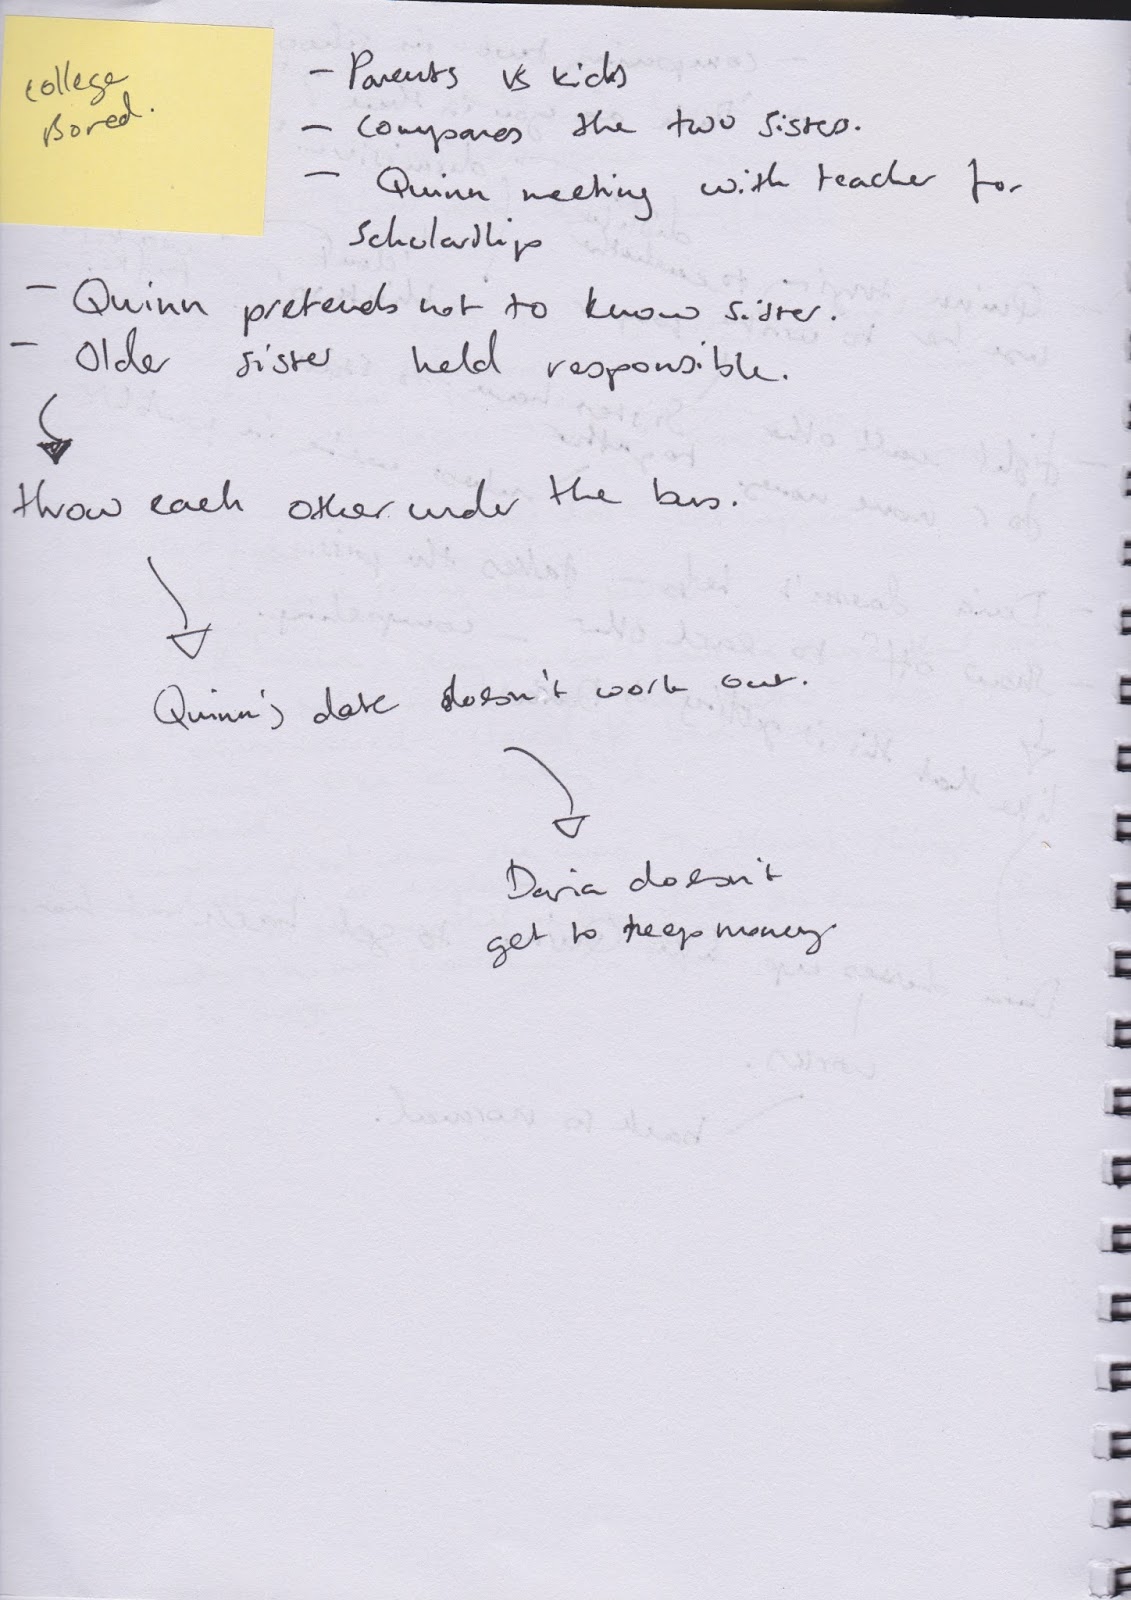 college
Bored.
- Parents vs kids
- Compares the two sisters.
- Quinn meeting with teacher for
scholarships
- Quinn pretends not to know sister.
- Older sister held responsible.
throw each other under the bus.
Quinn's date doesn't work out.
Daria doesn't
get to keep money.